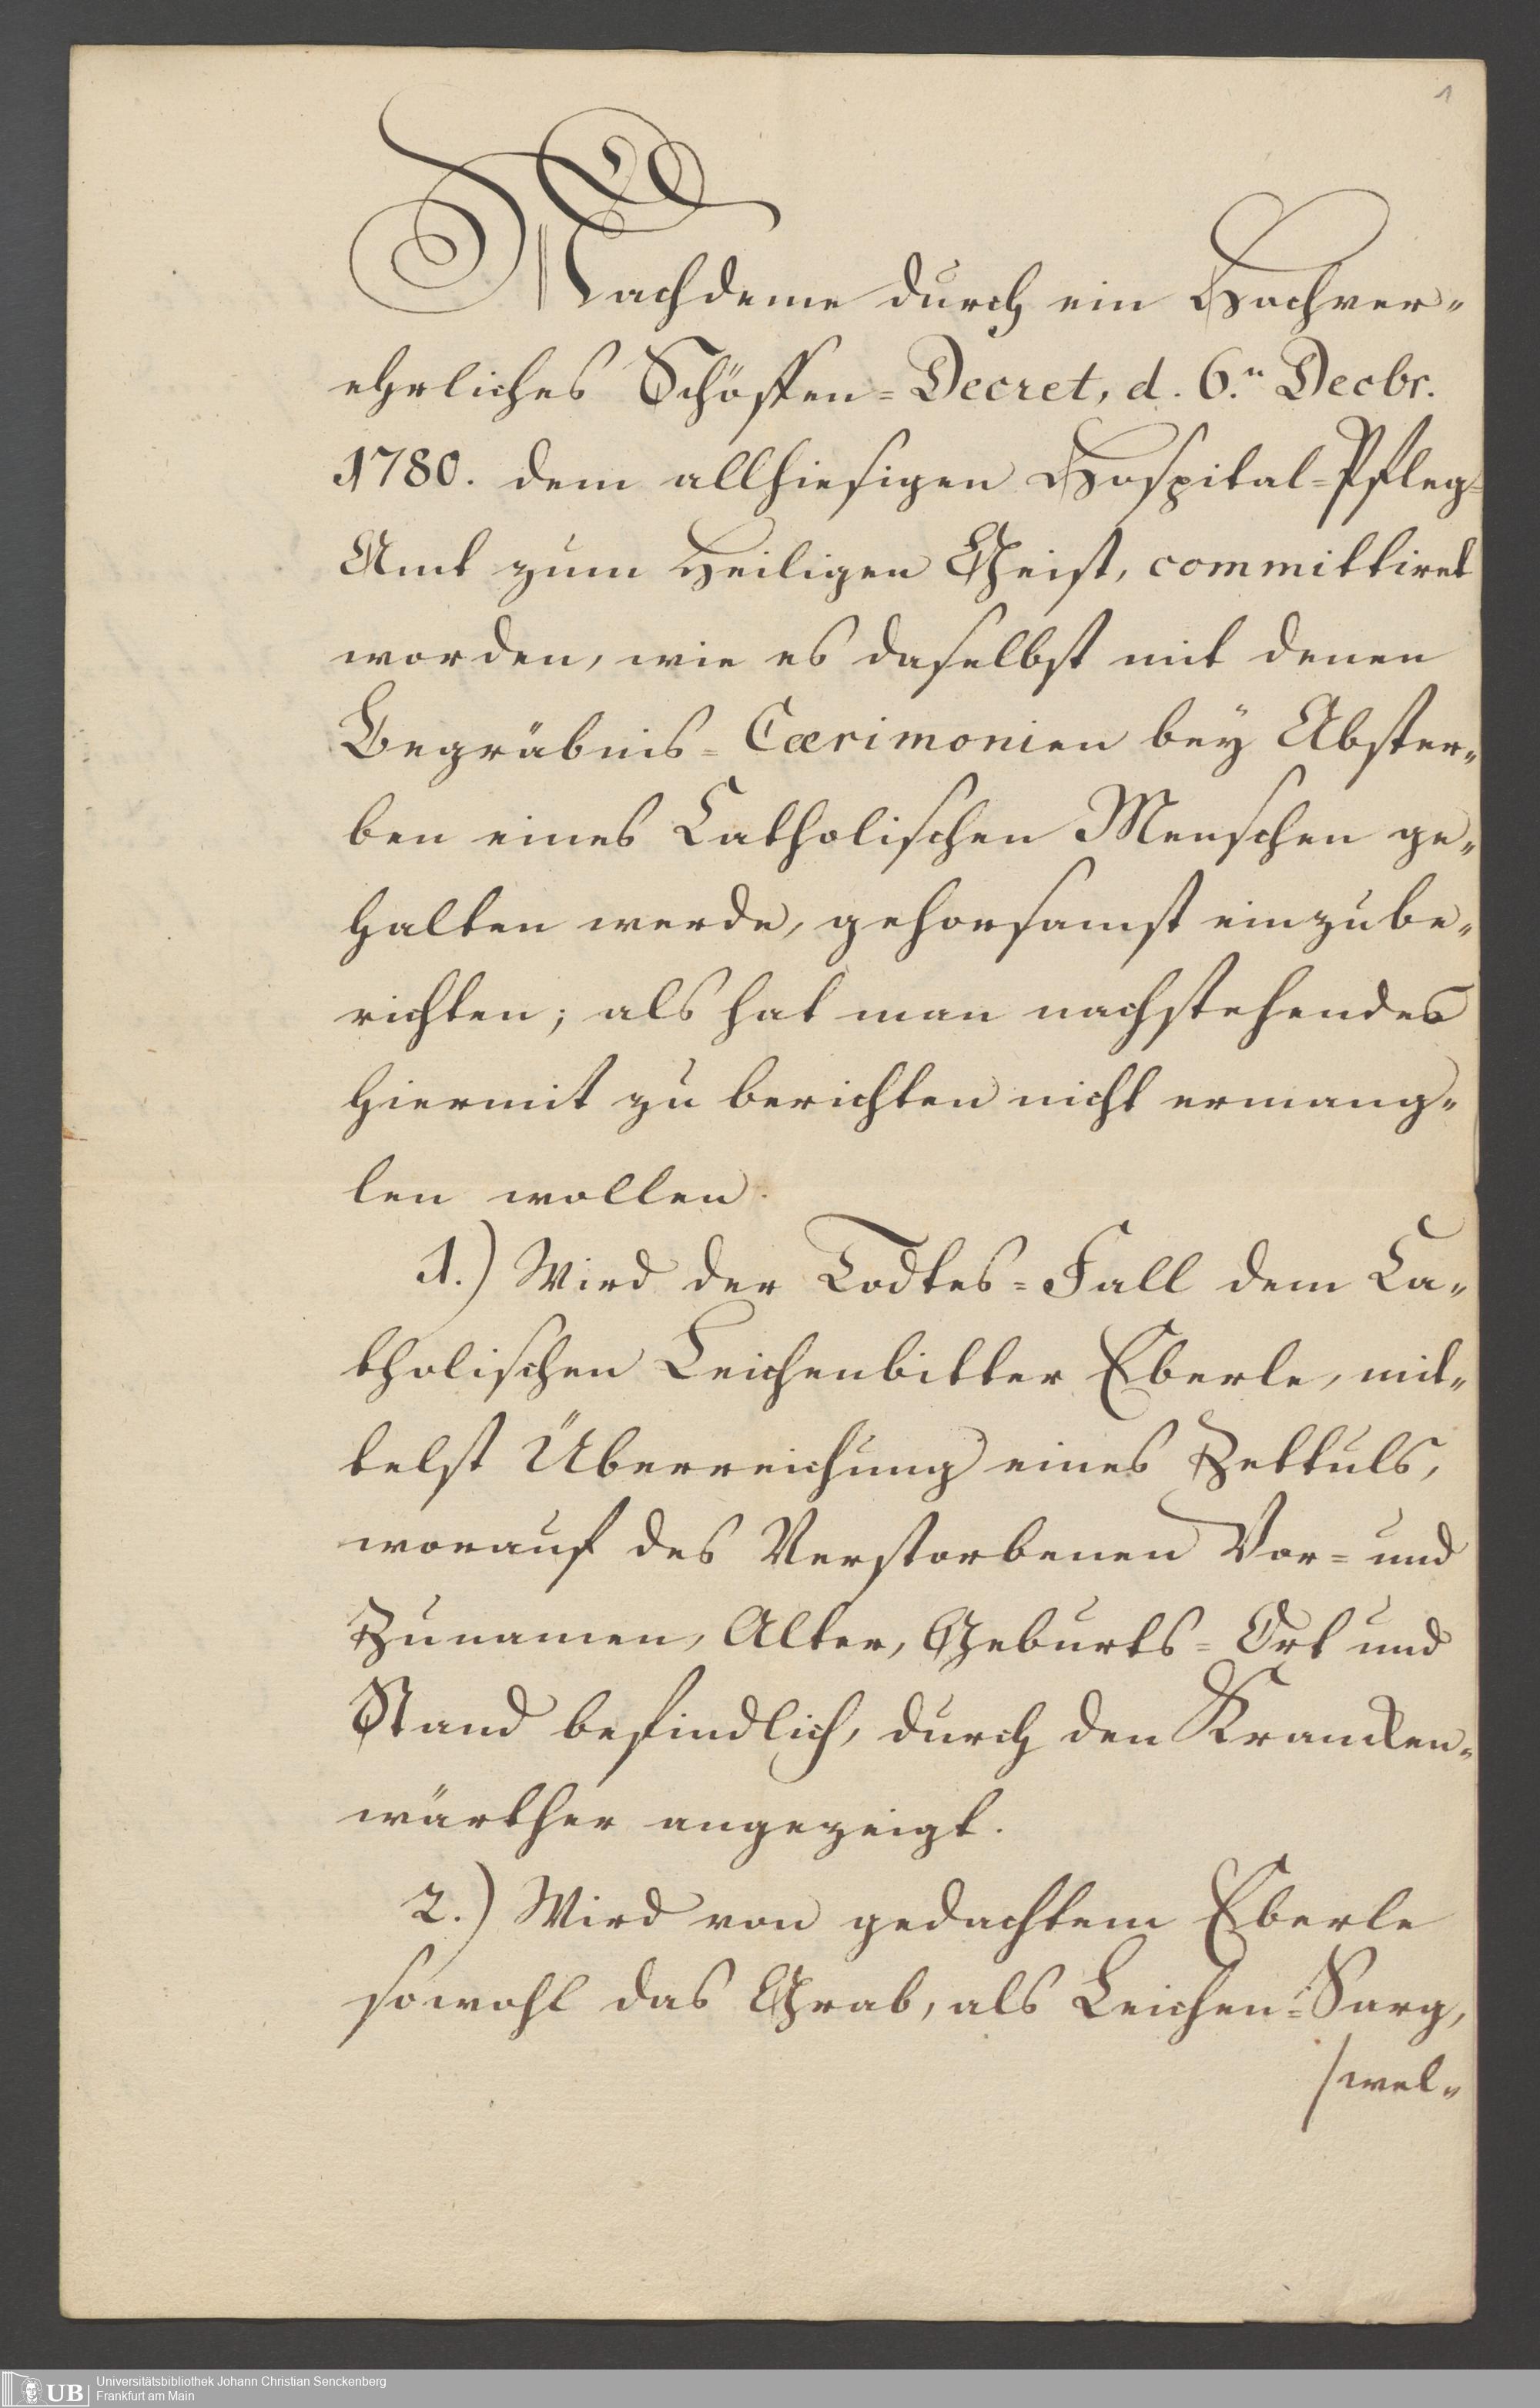 1
Nachdeme durch ein Hochver„
ehrliches Schöffen=Decret, d. 6.n Decbr.
1780. dem allhiesigen Hospital=Pfleg=
Amt zum Heiligen Geist, committiret
worden, wie es daselbst mit denen
Begräbnis=Cærimonien bey Abster„
ben eines Catholischen Menschen ge„
halten werde, gehorsamst einzube„
richten; als hat man nachstehendes
hiermit zu berichten nicht ermang„
len wollen.
1.) Wird der Todtes=Fall dem Ca„
tholischen Leichenbitter Eberle, mit„
telst Überreichung eines Zettuls,
worauf des Verstorbenen Vor= und
Zunamen, Alter, Geburts=Ort und
Stand befindlich, durch den Krancken„
wärther angezeigt.
2.) Wird von gedachtem Eberle
sowohl das Grab, als Leichen=Sarg,
/wel„
UB
Universitätsbibliothek Johann Christian Senckenberg
Frankfurt am Main